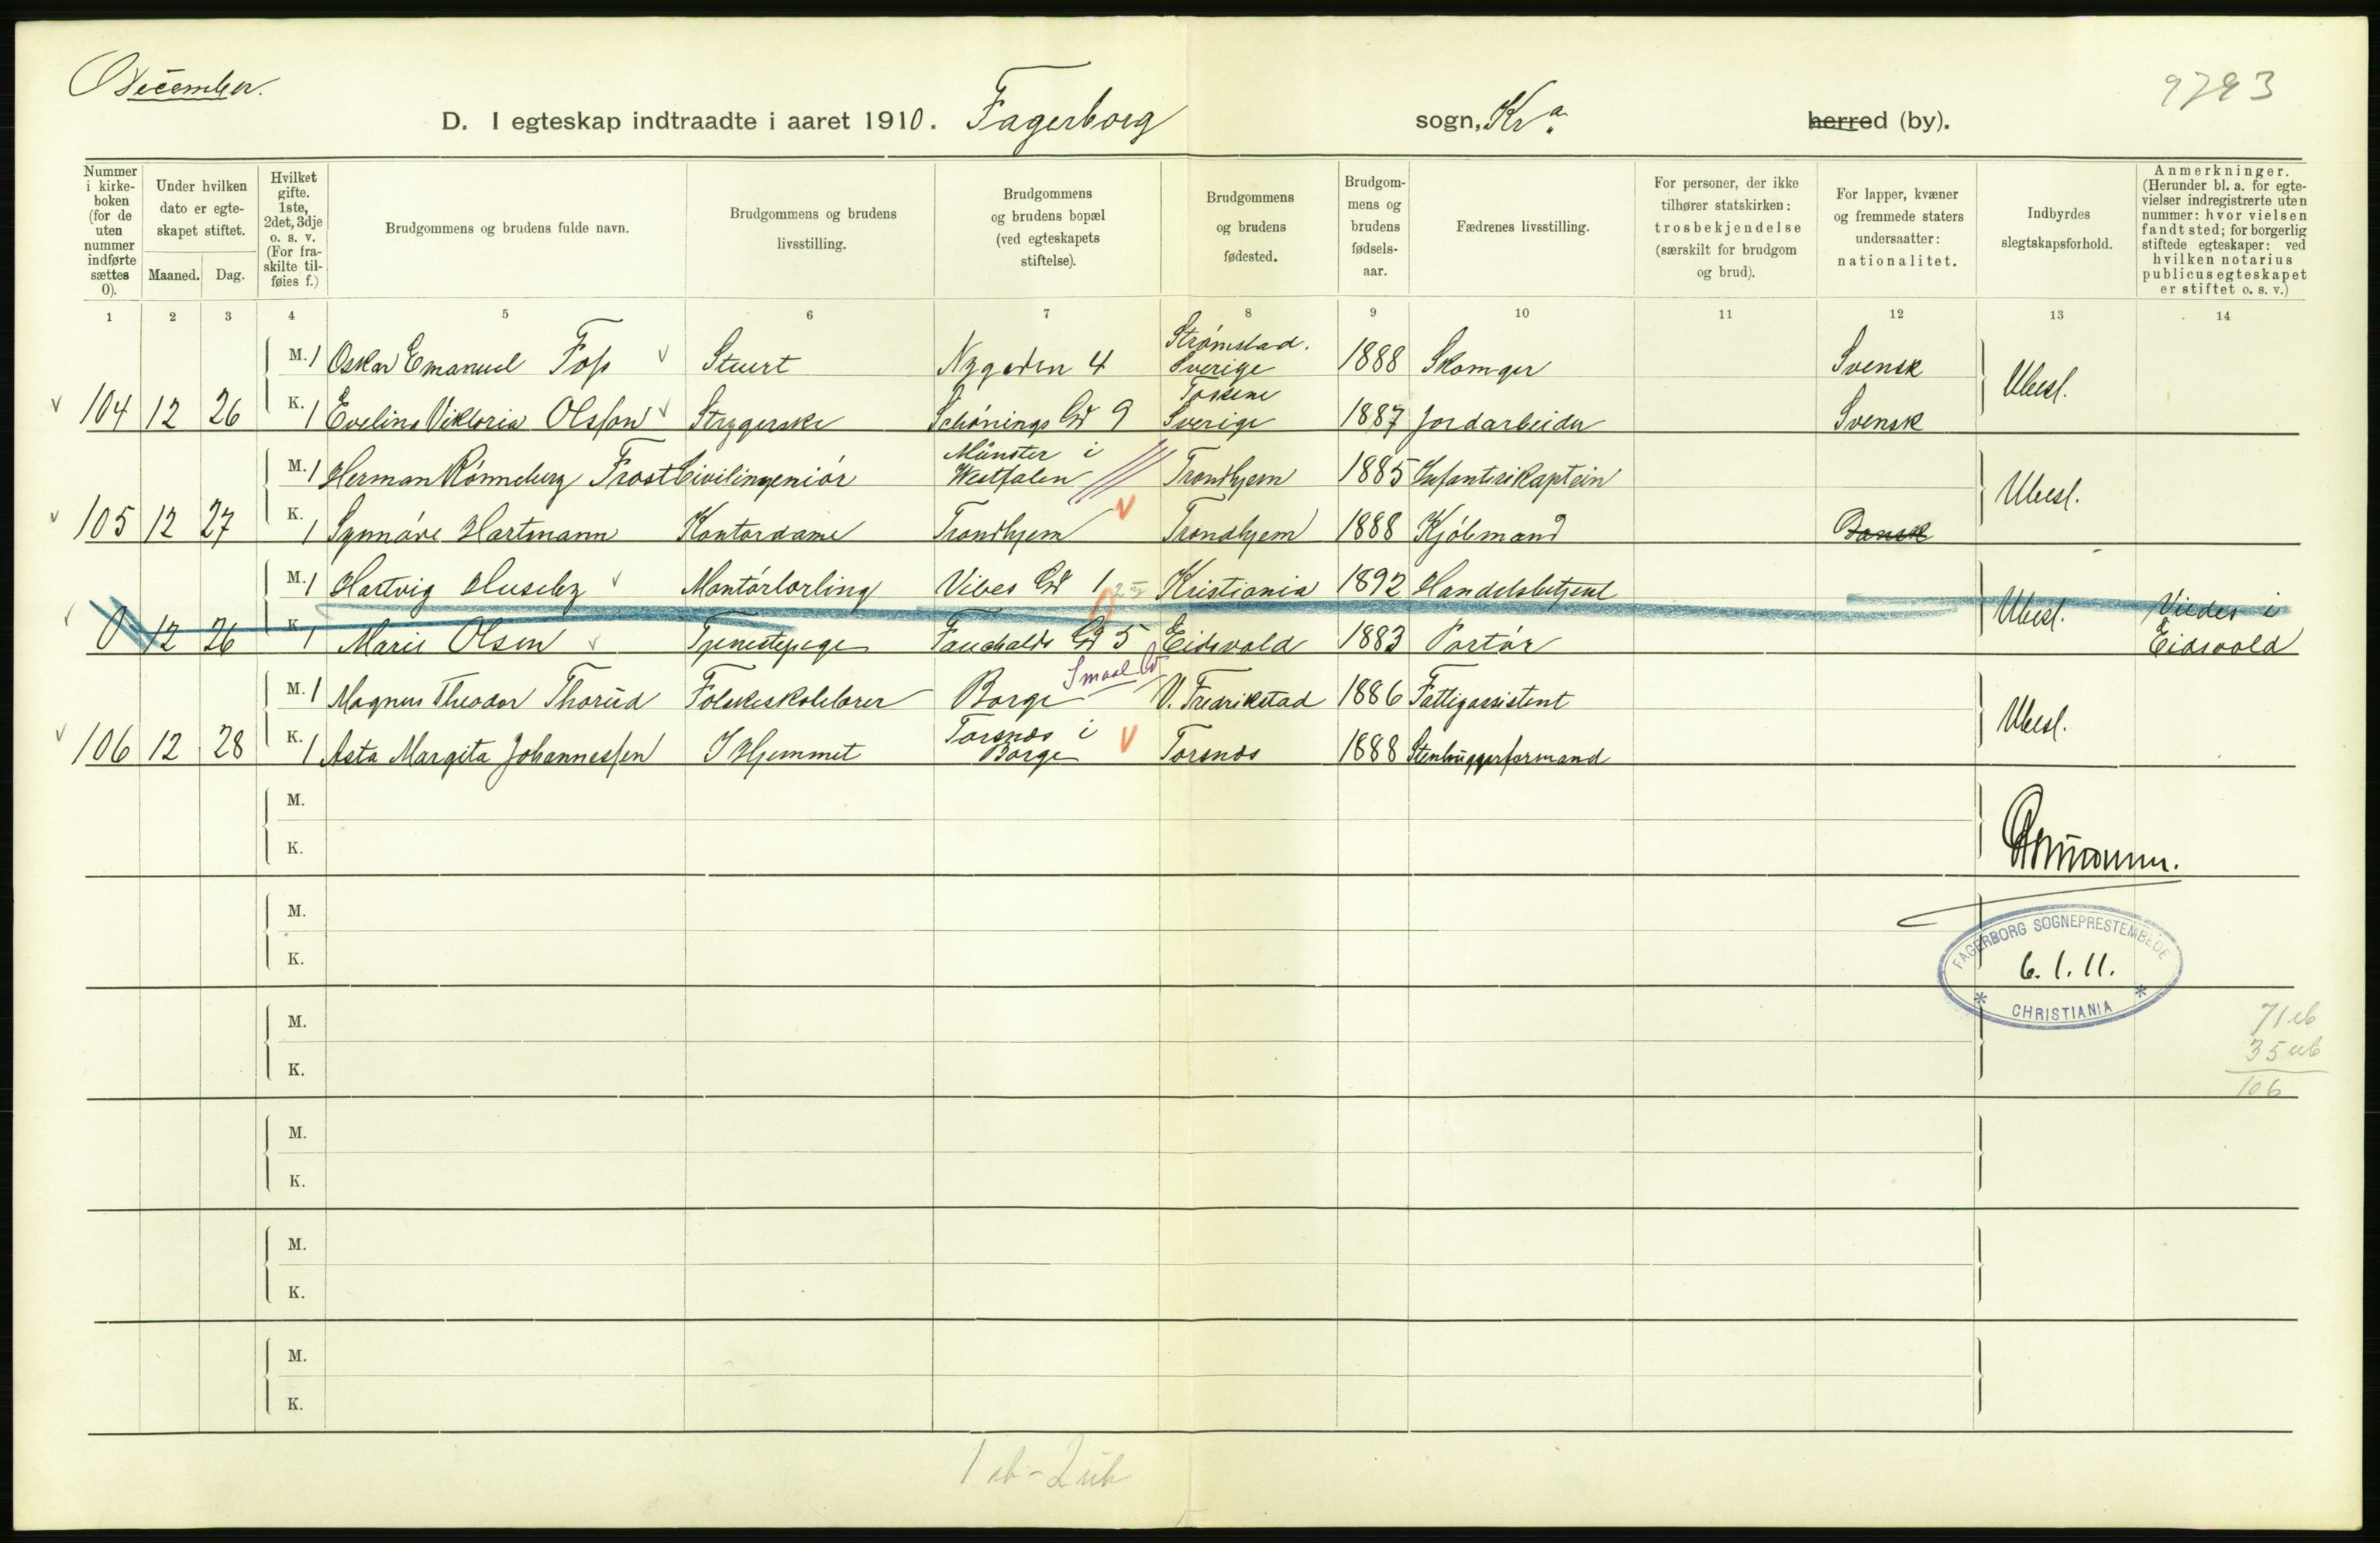 December.
9793
D. I egteskap indtraadte i aaret 1910. Fagerborg sogn, Kr.a herred (by).
Nummer i kirkeboken (for de uten nummer indførte sættes 0).
Under hvilken dato er egteskapet stiftet.
Maaned. Dag.
Hvilket gifte. 1ste, 2det, 3dje o. s. v. (For fraskilte tilføies f.)
Brudgommens og brudens fulde navn.
Brudgommens og brudens livsstilling.
Brudgommens og brudens bopæl (ved egteskapets stiftelse).
Brudgommens og brudens fødested.
Brudgommens og brudens fødselsaar.
Fædrenes livsstilling.
For personer, der ikke tilhører statskirken: trosbekjendelse (særskilt for brudgom og brud).
For lapper, kvæner og fremmede staters undersaatter: nationalitet.
Indbyrdes slegtskapsforhold.
Anmerkninger. (Herunder bl. a. for egtevielser indregistrerte uten nummer: hvor vielsen fandt sted; for borgerlig stiftede egteskaper: ved hvilken notarius publicus egteskapet er stiftet o. s. v.)
1 2 3 4 5 6 7 8 9 10 11 12 13 14
M. 1 Oskar Emanuel Foss Stuert Nygaden 4 Strømstad. Sverige 1888 Skomager Svensk
104 12 26 K. 1 Evelina Viktoria Olsson Strygerske Schønings Gd 9 Tossene Sverige 1887 Jordarbeider Svensk Ubesl.
M. 1 Herman Rönneberg Frost Civilingeniør Münster i Westfalen Trondhjem 1885 Infanterikaptein
105 12 27 K. 1 Synnøve Hartmann Kontordame Trondhjem Trondhjem 1888 Kjøbmand Dansk Ubesl.
M. 1 Hartvig Huseby Montørlærling Vibes Gd 1 Kristiania 1892 Handelsbetjent
0 12 26 K. 1 Marie Olsen Tjenestepige Fauchalds Gd 5 Eidsvold 1883 Portør Ubesl. Viedes i Eidsvold
M. 1 Magnus Theodor Thorud Folkeskolelærer Borge Smaal. V. Fredrikstad 1886 Fattigassistent
106 12 28 K. 1 Asta Margita Johannessen I Hjemmet Torsnæs i Borge Torsnæs 1888 Stenhuggerformand Ubesl.
M.
K.
M.
K.
FAGERBORG SOGNEPRESTEMBEDE
6. 1. 11.
CHRISTIANIA
M.
K.
71 eb
35 ub
106
M.
K.
M.
K.
M.
K.
1 eb - 2 ub